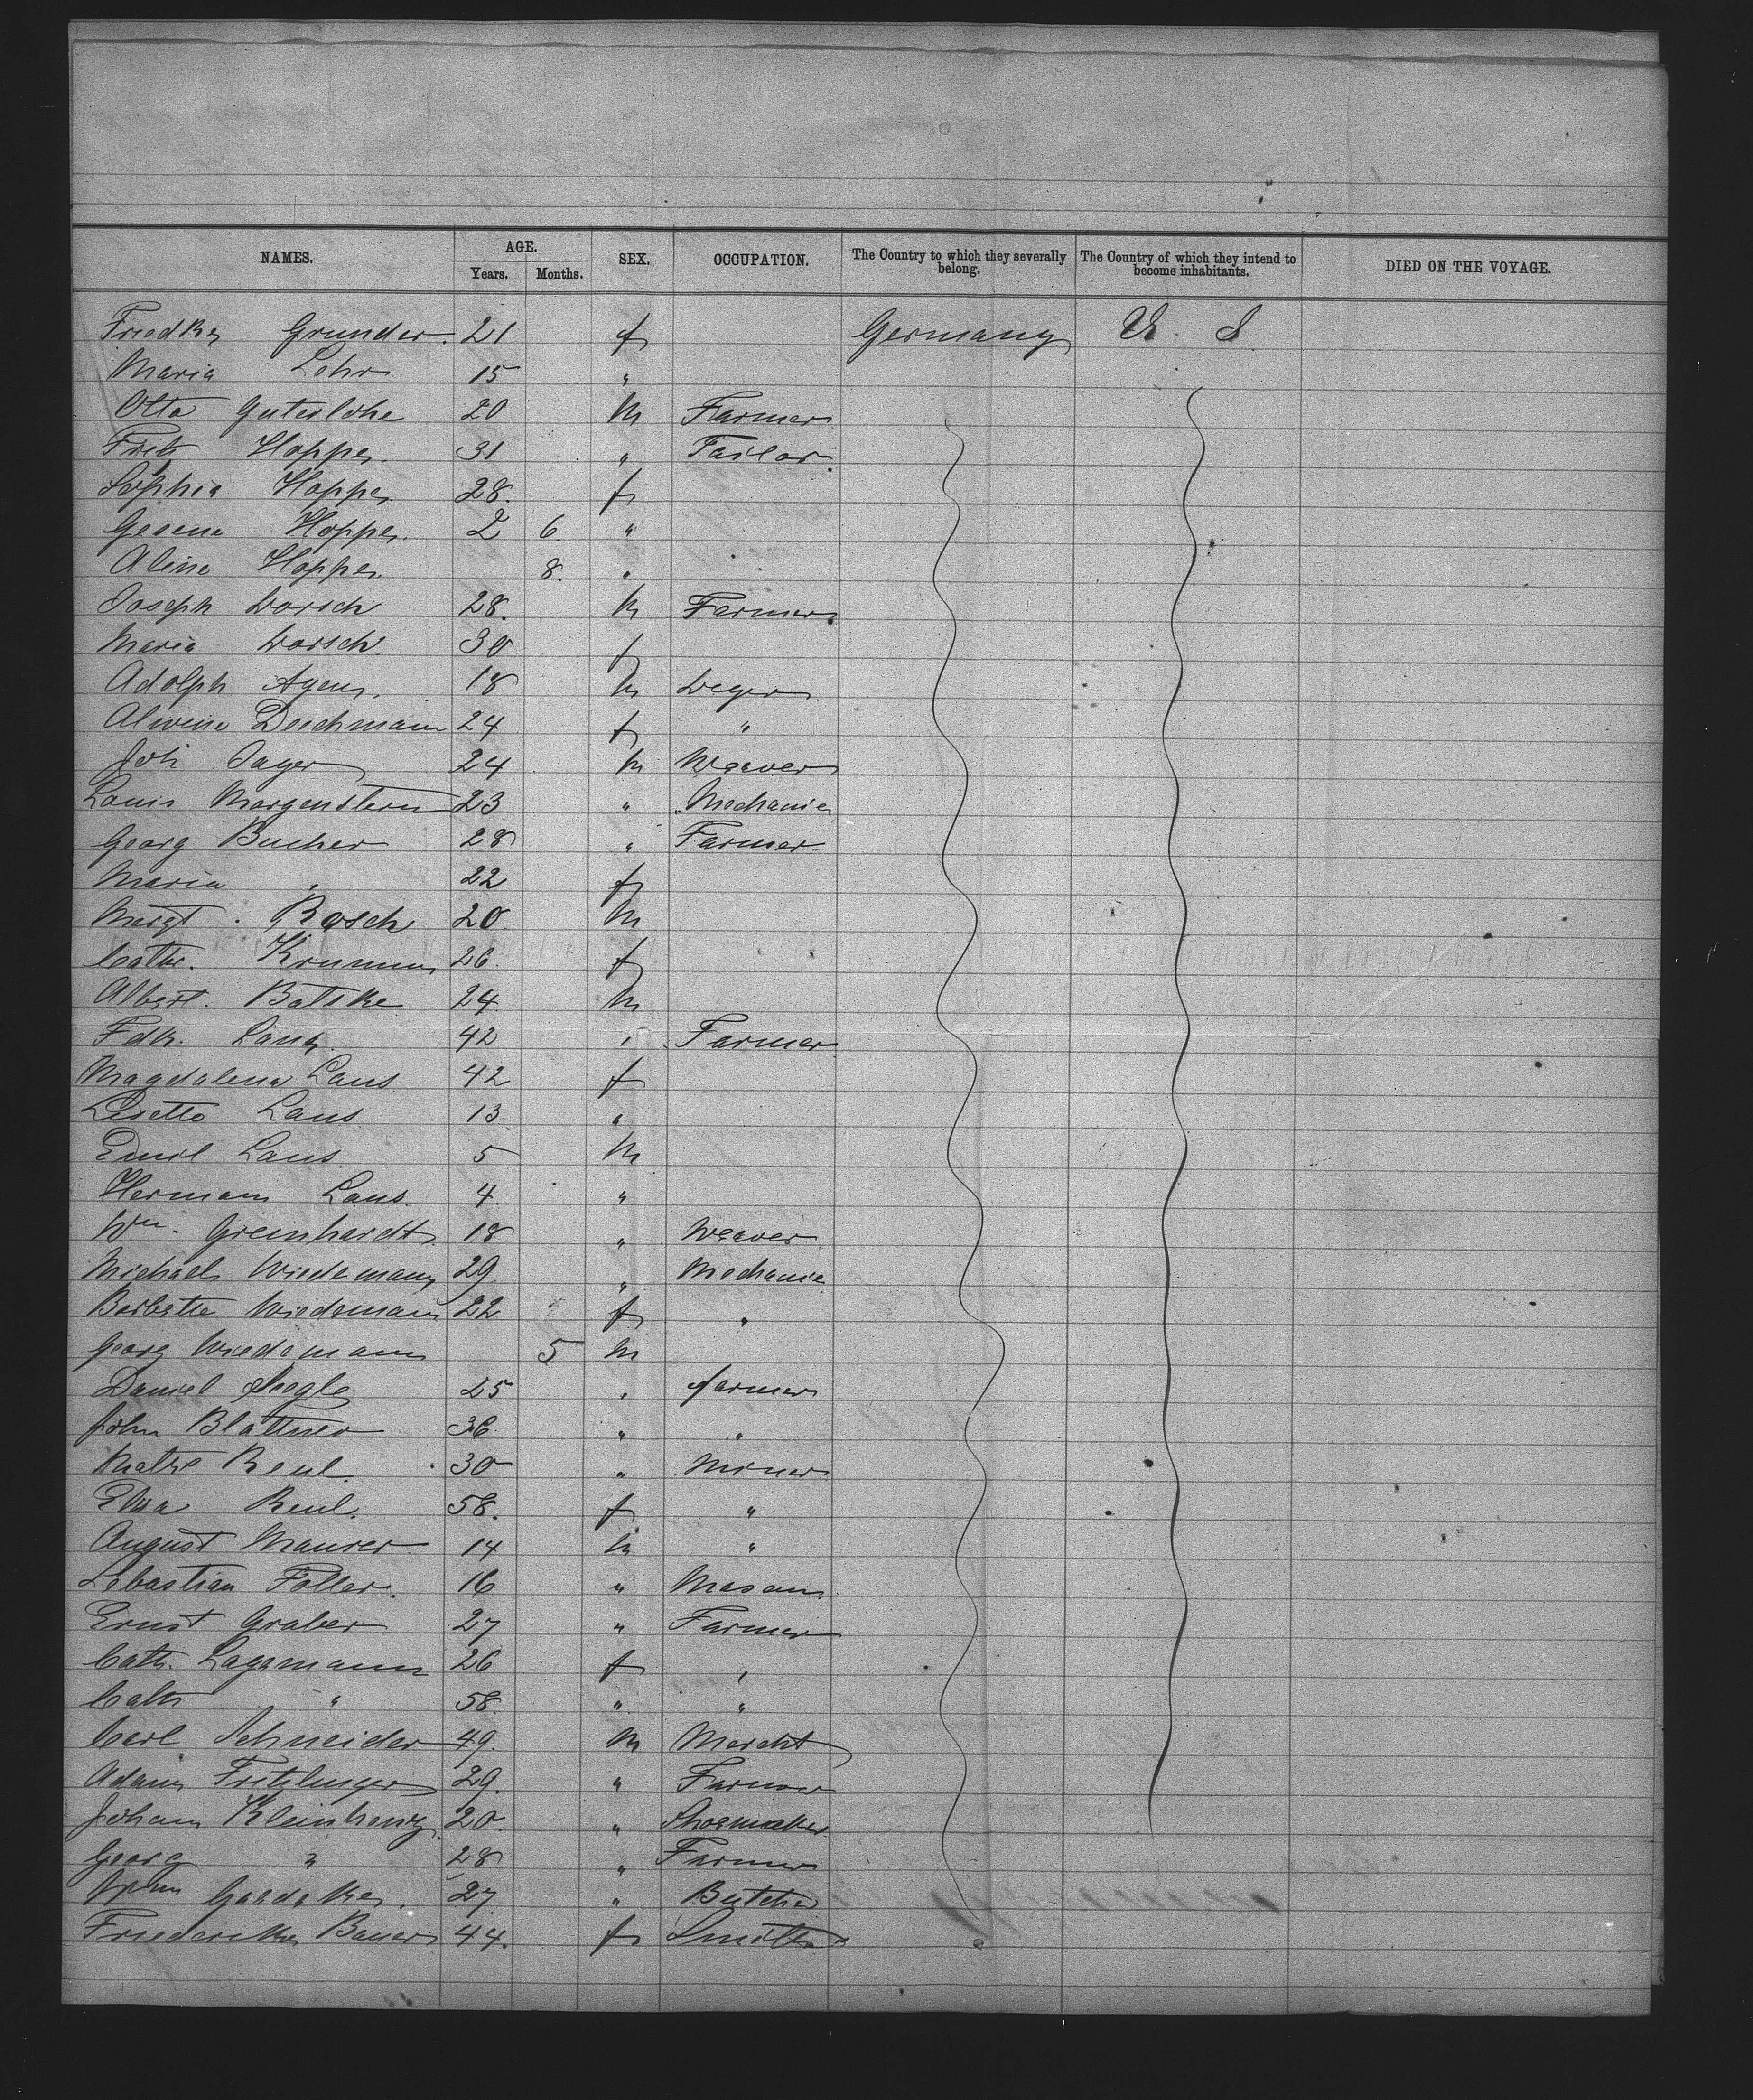 NAMES. AGE. SEX. OCCUPATION. The Country to which they severally belong. The Country of which they intend to become inhabitants. DIED ON THE VOYAGE.
Years. Months.
Grunder 21 f Germany U. S.
Maria Lehr 15 "
Otto Guterlohe 20 M Farmer
Fritz Hoppe 31 " Tailor
Sophia Hoppe 28. f
Gesena Hoppe 2 6 "
Aline Hoppe 8. "
Joseph Dorsch 28. M Farmer
Maria Dorsch 30 f
Adolph 18 M Dyer
Alwine Deichmann 24 f "
Joh Jager 24 M Weaver
Louis Morgenstern 23 " Mechanic
Georg Bucher 28 " Farmer
Maria " 22 f
Margt. Rosch 20 M
Cathe. 26. f
Albert. Batske 24 M
Fdk. Laus 42 " Farmer
Magdalena Laus 42 f
Lisette Laus 13 "
Emil Laus 5 M
Hermann Laus 4 "
Wm. Greinhardt 18 " Weaver
Michael Wiedemann 29 " Mechanic
Barbette Wiedemann 22 f "
Georg Wiedemann 5 M
Daniel 25 " farmer
John Blattner 36 " "
Reul 30 " Miner
Elisa Reul. 58. f "
August Maurer 14 M "
Sebastian Foller 16 " Mason
Ernst Graber 27 " Farmer
Cath. Lagemann 26 f "
Cath " 58 " "
Carl Schneider 49. M Mercht
Adam Fritzlinger 29. " Farmer
Johann Kleinhenz 20. " Shoemaker
Georg " 28 " Farmer
John 27 " Butcher
Friedericke Bauer 44. f Smith